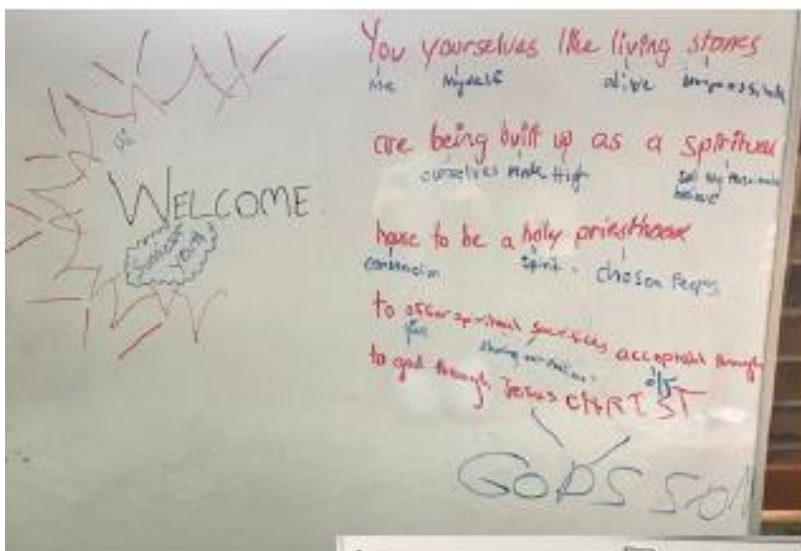 WELCOME
Youth
You yourselves like living stones
me myself alive
are being built up as a spiritual
ourselves High
house to be a holy priesthood
construction spirit chosen People
to offer spiritual sacrifices acceptable through
give sharing our
to god through Jesus CHRIST
GODS SON